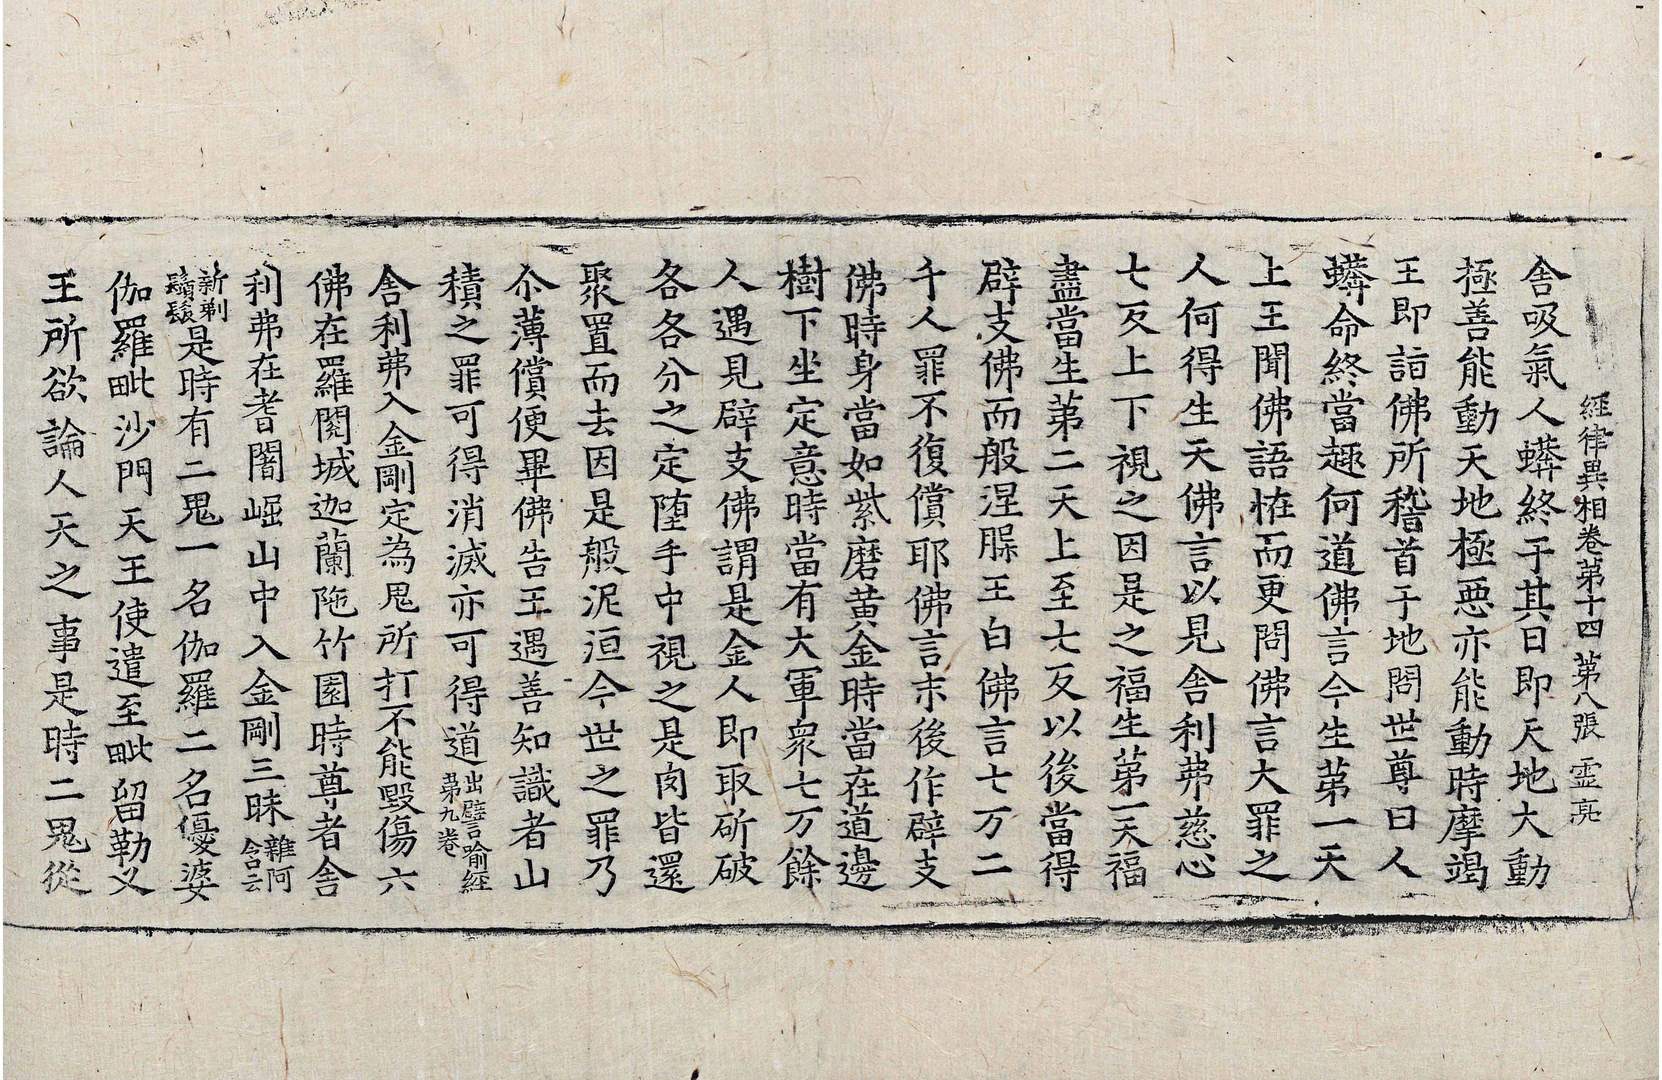 經律異相卷第十四 第八張 霊亮
舍吸氣人蟒終于其日即天地大動
極善能動天地極惡亦能動時摩竭
王即詣佛所稽首于地問世尊曰人
蟒命終當趣何道佛言今生苐一天
上王聞佛語恠而更問佛言大罪之
人何得生天佛言以見舍利弗慈心
七反上下視之因是之福生苐一天福
盡當生苐二天上至七反以後當得
辟支佛而般涅槃王白佛言七万二
千人罪不復償耶佛言末後作辟支
佛時身當如紫磨黃金時當在道邊
樹下坐定意時當有大軍衆七万餘
人遇見辟支佛謂是金人即取斫破
各各分之定墮手中視之是肉皆還
聚置而去因是般泥洹今世之罪乃
尒薄償便畢佛告王遇善知識者山
積之罪可得消滅亦可得道出譬喻經苐九卷
舍利弗入金剛定為鬼所打不能毀傷六
佛在羅閱城迦蘭陁竹園時尊者舍
利弗在耆闍崛山中入金剛三昧雜阿含云
新剃鬚髮是時有二鬼一名伽羅二名優婆
伽羅毗沙門天王使遣至毗留勒叉
王所欲論人天之事是時二鬼從